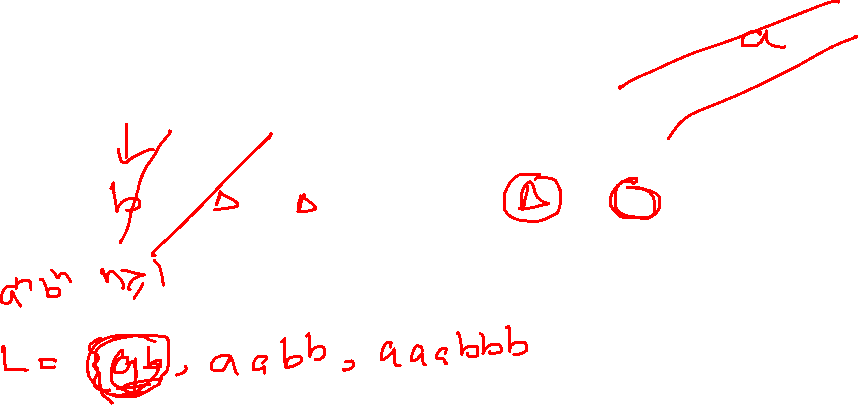 a
b Δ Δ Δ
aⁿbⁿ n≥1
L = ab, aabb, aaabbb